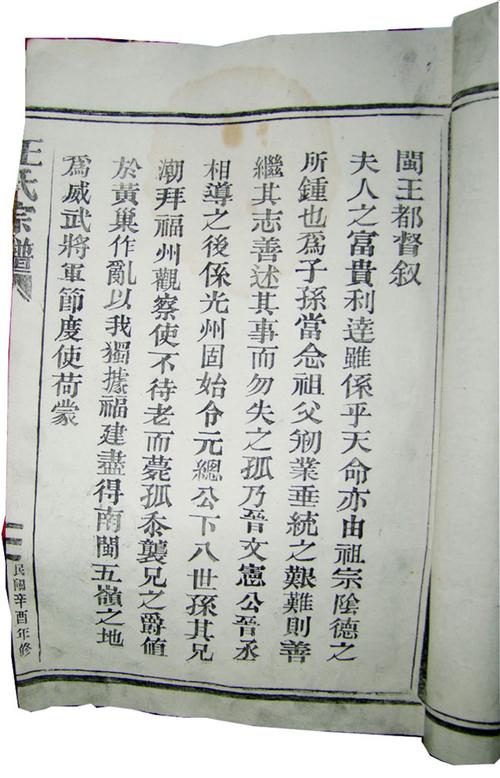 閩王都督叙
夫人之富貴利達雖係乎天命亦由祖宗陰德之
所鍾也爲子孫當念祖父刱業垂統之艱難則善
繼其志善述其事而勿失之孤乃晉文憲公晉丞
相導之後係光州固始令元總公下八世孫其兄
潮拜福州觀察使不待老而薨孤忝襲兄之爵值
於黃巢作亂以我獨據福建盡得南閩五嶺之地
爲威武將軍節度使荷蒙
王氏宗譜
民國辛酉年修